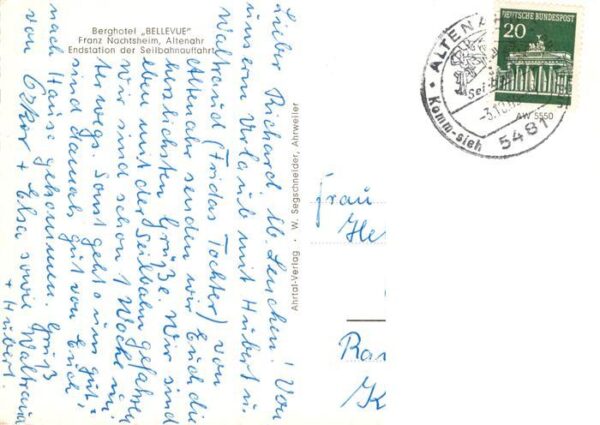 Berghotel „BELLEVUE"
Franz Nachtsheim, Altenahr
Endstation der Seilbahnauffahrt
Lieber Richard lb. Lenchen! Von
unserm Urlaub mit Hubert u.
Waltraud (Fridas Tochter) von
Altenahr senden wir Euch die
herzlichsten Grüße. Wir sind
eben mit der Seilbahn gefahren
Wir sind schon 1 Woche un-
terwegs. Sonst geht's uns gut,
sind damals gut von Euch
nach Hause gekommen. Gruß
von Oskar + Elsa sowie Waltraud
+ Hubert.
Ahrtal-Verlag · W. Segschneider, Ahrweiler
DEUTSCHE BUNDESPOST
20
ALTENA
Komm-sieh
-3.10.
AW 5550
5481
Frau
He
Ra
K